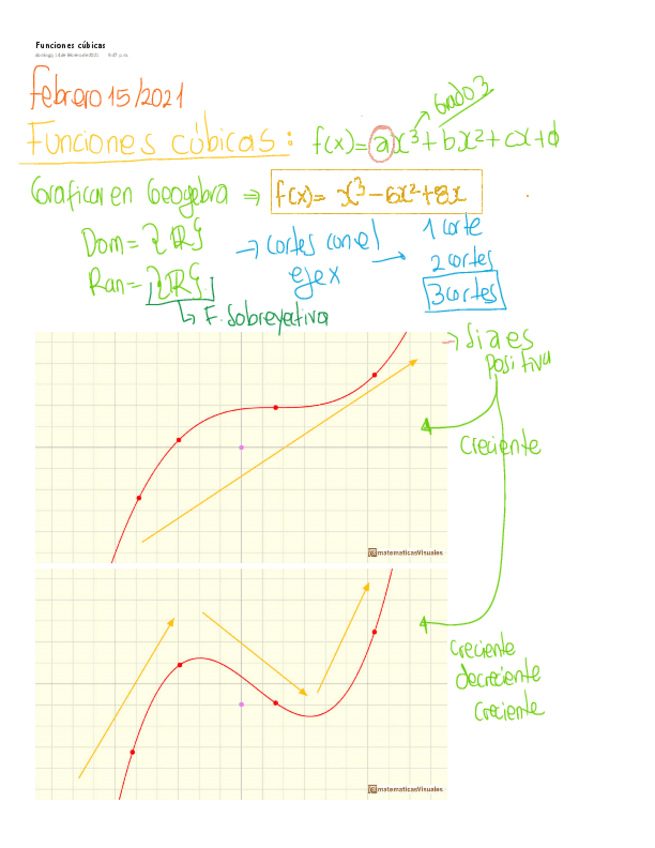 Funciones cúbicas
Febrero 15/2021
Grado 3
Funciones cúbicas: f(x)=ax³+bx²+cx+d
Graficar en Geogebra ⇒ f(x)= x³-6x²+8x
Dom= {ℝ}
Ran= {ℝ}.
↳ F. Sobreyectiva
→ cortes con el eje x →
1 corte
2 cortes
3 cortes
→ Si a es
positiva
Creciente
matematicasVisuales
Creciente
decreciente
Creciente
matematicasVisuales